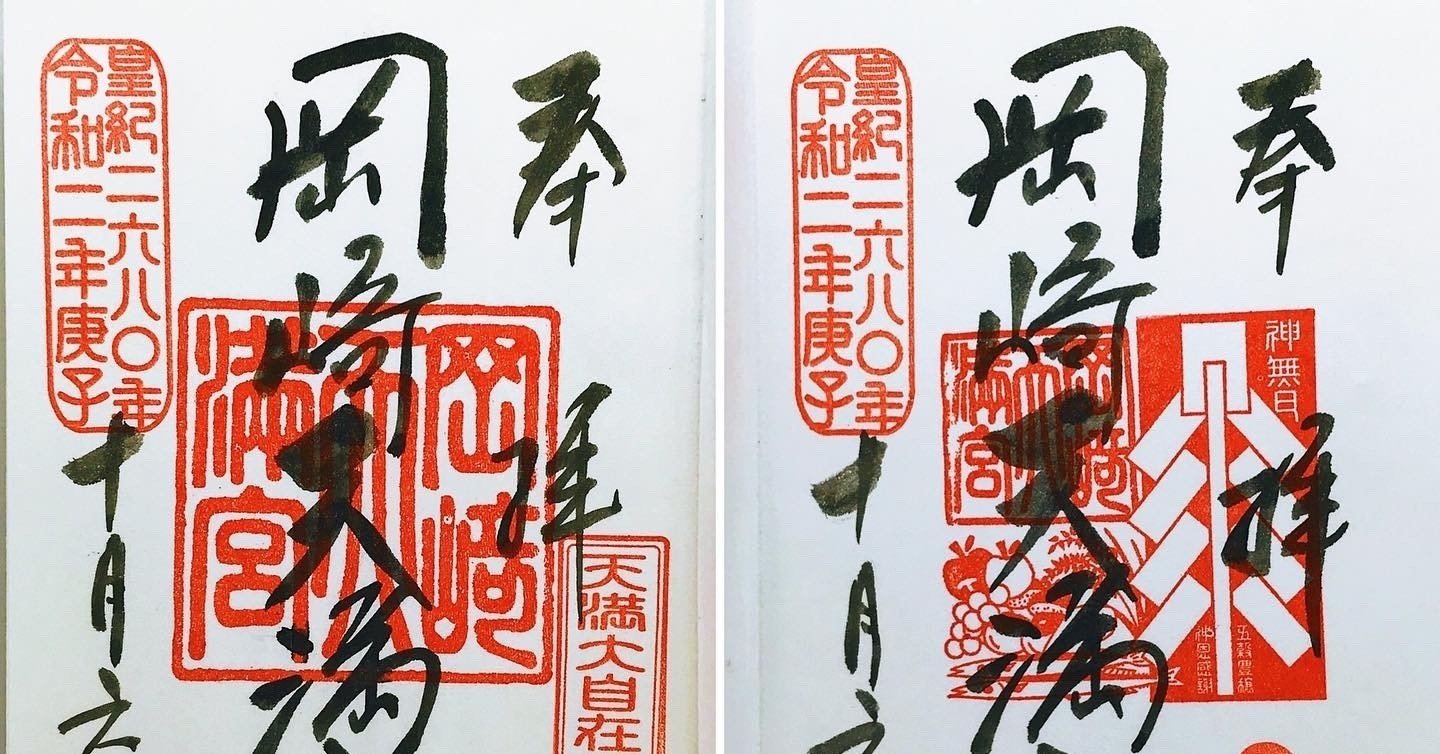 奉拝
岡崎天満
岡崎天満宮
天満大自在
皇紀二六八〇年
令和二年庚子
十月六
奉拝
岡崎天満
岡崎天満宮
神無月
五穀豊穣
神恩感謝
皇紀二六八〇年
令和二年庚子
十月六